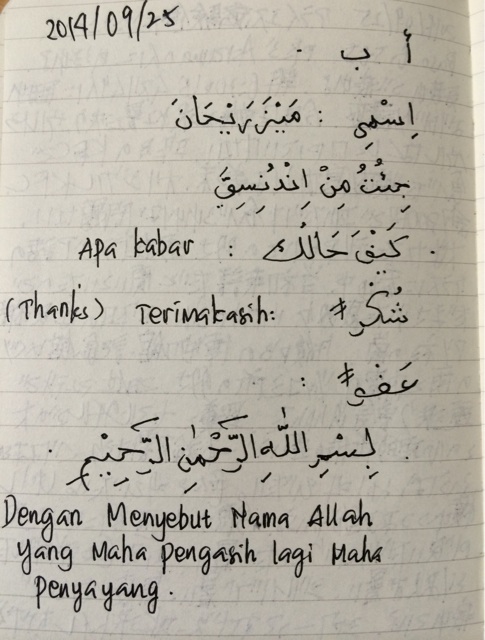 2014/09/25
أ ب .
اِسْمِي : مَيْزَرَيْحَانَ
جِئْتُ مِنْ اِنْدُنِسِيَّ
Apa kabar : كَيْفَ حَالُكَ .
(Thanks) Terimakasih: شُكْرً#
: عَفْوً#
. بِسْمِ اللّٰهِ الرَّحْمٰنِ الرَّحِيْمِ .
Dengan Menyebut Nama Allah
yang Maha pengasih lagi Maha
penyayang.